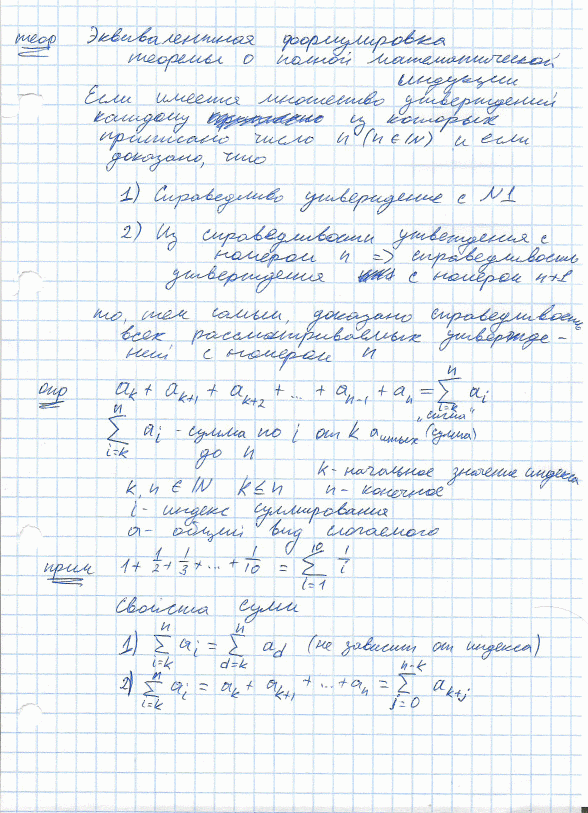 теор Эквивалентная формулировка
теоремы о полной математической
индукции
Если имеется множество утверждений
каждому из которых
приписано число n (n ∈ ℕ) и если
доказано, что
1) Справедливо утверждение с N1
2) Из справедливости утвеждения с
номером n => справедливость
утверждения с номером n+1
то, тем самым, доказано справедливость
всех рассматриваемых утвержде-
ний с номером n
опр a_k + a_{k+1} + a_{k+2} + ... + a_{n-1} + a_n = \sum_{i=k}^{n} a_i
„сигма“
\sum_{i=k}^{n} a_i - сумма по i от k a_итых (сумма)
до n
k - начальное значение индекса
k, n ∈ ℕ k ≤ n n - конечное
i - индекс суммирования
a - общий вид слогаемого
прим 1 + 1/2 + 1/3 + ... + 1/10 = \sum_{i=1}^{10} 1/i
Свойста сумм
1) \sum_{i=k}^{n} a_i = \sum_{d=k}^{n} a_d (не зависит от индекса)
2) \sum_{i=k}^{n} a_i = a_k + a_{k+1} + ... + a_n = \sum_{j=0}^{n-k} a_{k+j}